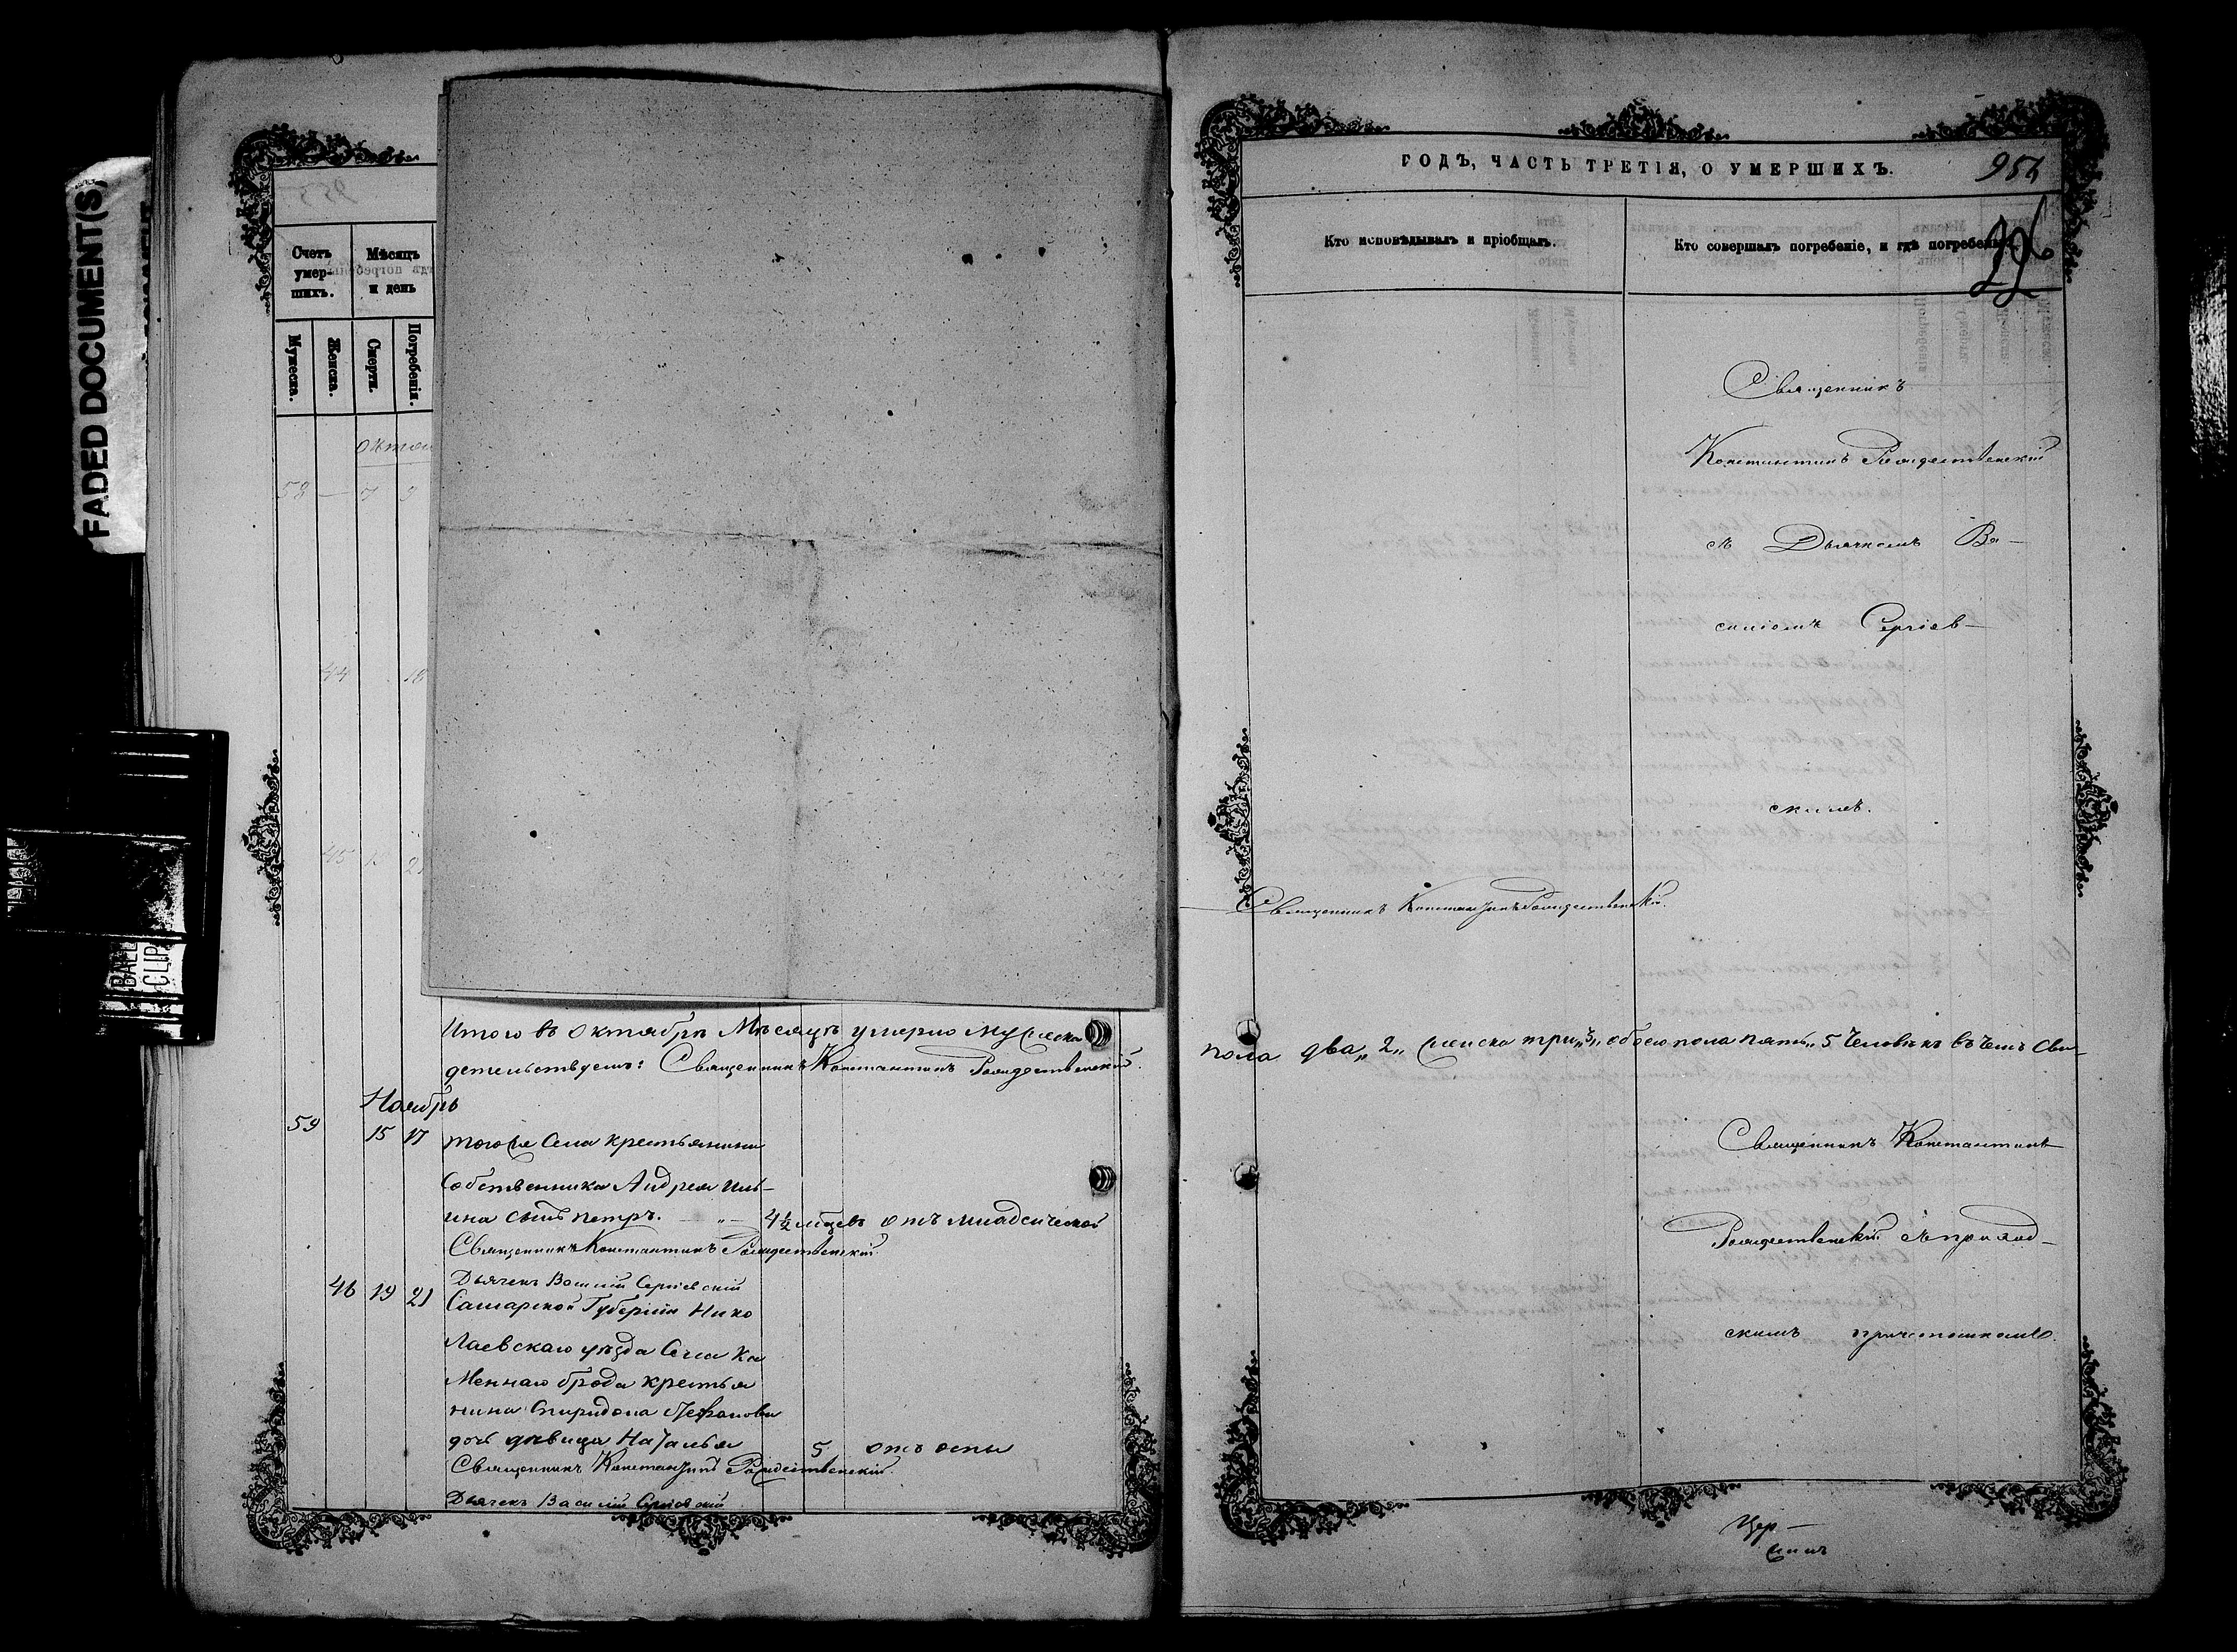 FADED DOCUMENT(S)
Счетъ умершихъ.
Мѣсяцъ и день
Мужеска.
Женска.
Смерти.
Погребенія.
58 — 7 9
44 18
45
Итого въ Октябрѣ Мѣсяцѣ умерло мужеска
детельствуемъ: Священникъ Константинъ Рождественскій.
Ноябрь
59 15 17 того же Села крестьянина
Собственника Андрея Иль-
ина сынъ Петръ. — „ — 4½ мѣсцевъ отъ младенческой
Священникъ Константинъ Рождественскій.
Дьячекъ Василій Сергіевскій
46 19 21 Самарской Губерніи Нико
лаевскаго уѣзда Села Ка
меннаго брода крестья
нина Спиридона
дочь дѣвица Наталья 5 отъ оспы
Священникъ Константинъ Рождественскій.
Дьячекъ Василій Сергіевскій
ГОДЪ, ЧАСТЬ ТРЕТІЯ, О УМЕРШИХЪ.
Кто исповѣдывалъ и пріобщалъ.
Кто совершалъ погребеніе, и гдѣ погребены.
Священникъ
Константинъ Рождественскій
съ Дьячкомъ Ва-
силіемъ Сергіев-
скимъ.
Священникъ Константинъ Рождественскій.
пола два „2„ женска три „3„ обоего пола пять „5 Человѣкъ въ чемъ Сви-
Священникъ Константинъ
Рождественскій съ приход-
скимъ причетникомъ.